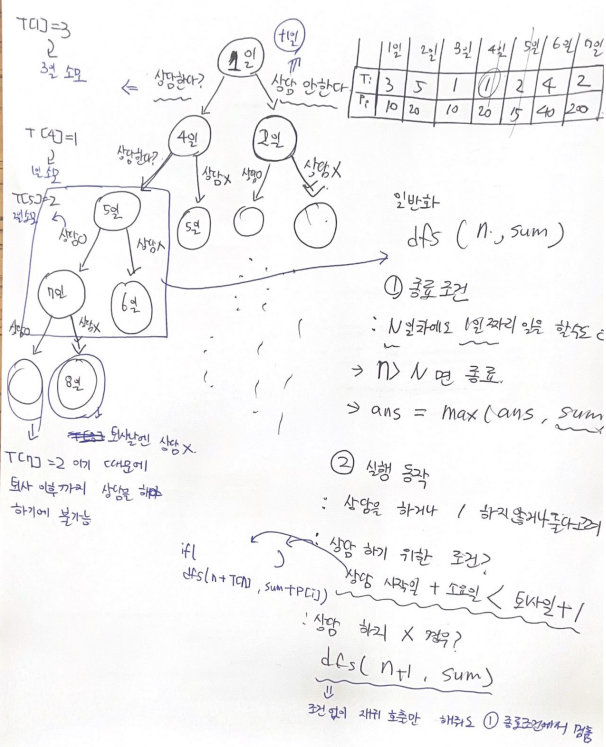 T[1]=3
3일 소모
상담한다?
1일
+1일
상담 안한다
1일 2일 3일 4일 5일 6일 7일
Ti 3 5 1 1 2 4 2
Pi 10 20 10 20 15 40 200
T[4]=1
1일 소모
상담한다?
4일
2일
상담X
상담O
상담X
T[5]=2
2일 소모
5일
5일
상담O
상담X
7일
6일
상담O
상담X
8일
퇴사날엔 상담 X.
T[7]=2 이기 때문에
퇴사 이후까지 상담을 해야
하기에 불가능
일반화
dfs (n, sum)
① 종료 조건
: N일차에도 1일짜리 일을 할수도
→ n> N 면 종료.
→ ans = max(ans, sum
② 실행 동작
: 상담을 하거나 / 하지않거나 둘다고려
: 상담 하기 위한 조건?
if( )
dfs(n+T[n], sum+P[i])
상담 시작일 + 소요일 < 퇴사일+1
: 상담 하지 X 경우?
dfs( n+1, sum)
조건없이 재귀 호출만 해줘도 ① 종료조건에서 멈춤